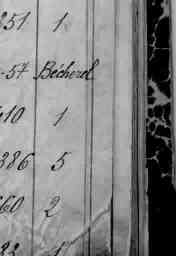 851 1
-57 Bécherel
410 1
386 5
660 2